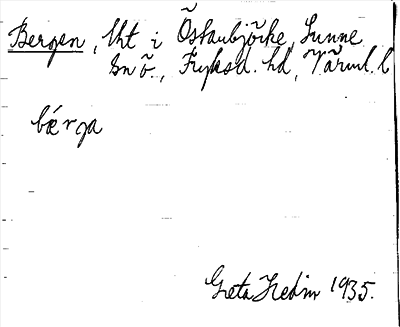 Bergen, lht i Östanbjörke, Sunne
sn ö., Fryksd. hd, Värml. l
bærga
Greta Hedin 1935.